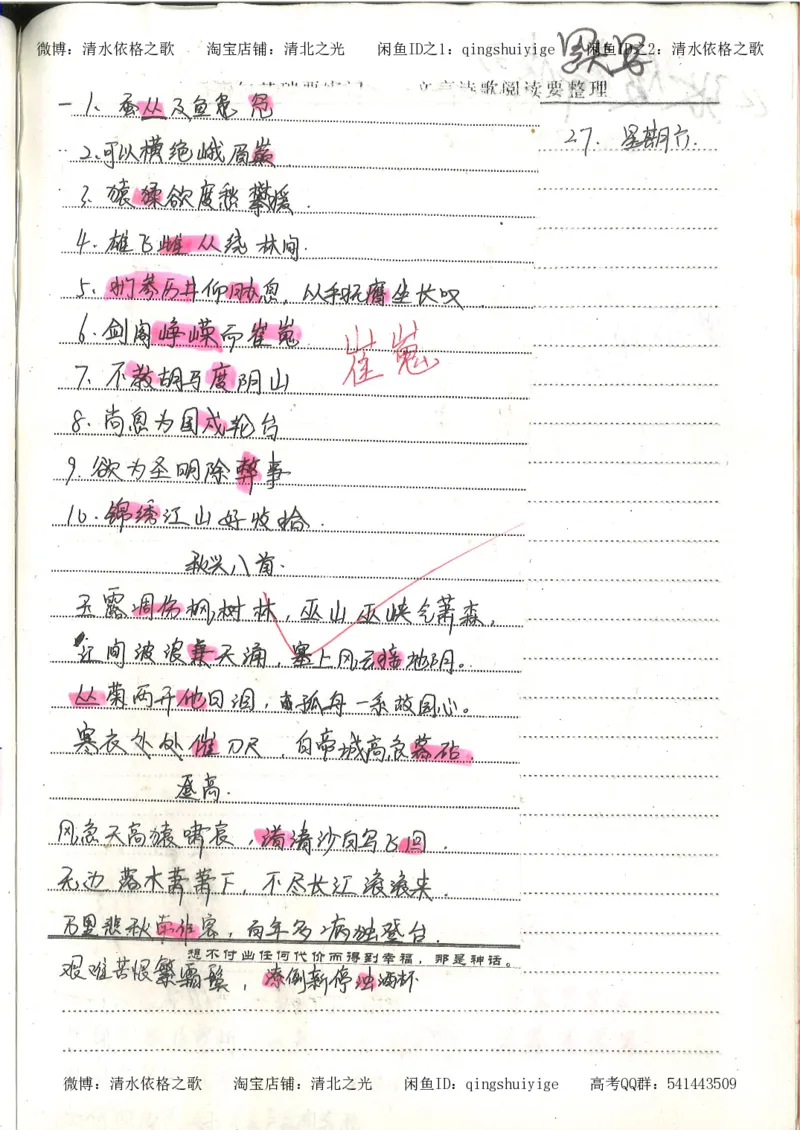 微博：清水依格之歌 淘宝店铺：清北之光 闲鱼ID之1：qingshuiyige 闲鱼ID之2：清水依格之歌
文言诗歌阅读要整理
27. 星期六.
一1、蚕丛及鱼凫 凫
2、可以横绝峨眉巅
3、猿猱欲度愁攀援.
4.雄飞雌从绕林间.
5.扪参历井仰胁息，以手抚膺坐长叹
6.剑阁峥嵘而崔嵬
崔嵬
7、不教胡马度阴山
8.尚思为国戍轮台
9.欲为圣明除弊事
10.锦绣江山好收拾.
秋兴八首.
玉露凋伤枫树林，巫山巫峡气萧森，
江间波浪兼天涌，塞上风云接地阴。
丛菊两开他日泪，孤舟一系故园心。
寒衣处处催刀尺，白帝城高急暮砧.
登高.
风急天高猿啸哀，渚清沙白鸟飞回.
无边落木萧萧下，不尽长江滚滚来.
万里悲秋常作客，百年多病独登台.
想不付出任何代价而得到幸福，那是神话。
艰难苦恨繁霜鬓，潦倒新停浊酒杯
微博：清水依格之歌 淘宝店铺：清北之光 闲鱼ID：qingshuiyige 高考QQ群：541443509